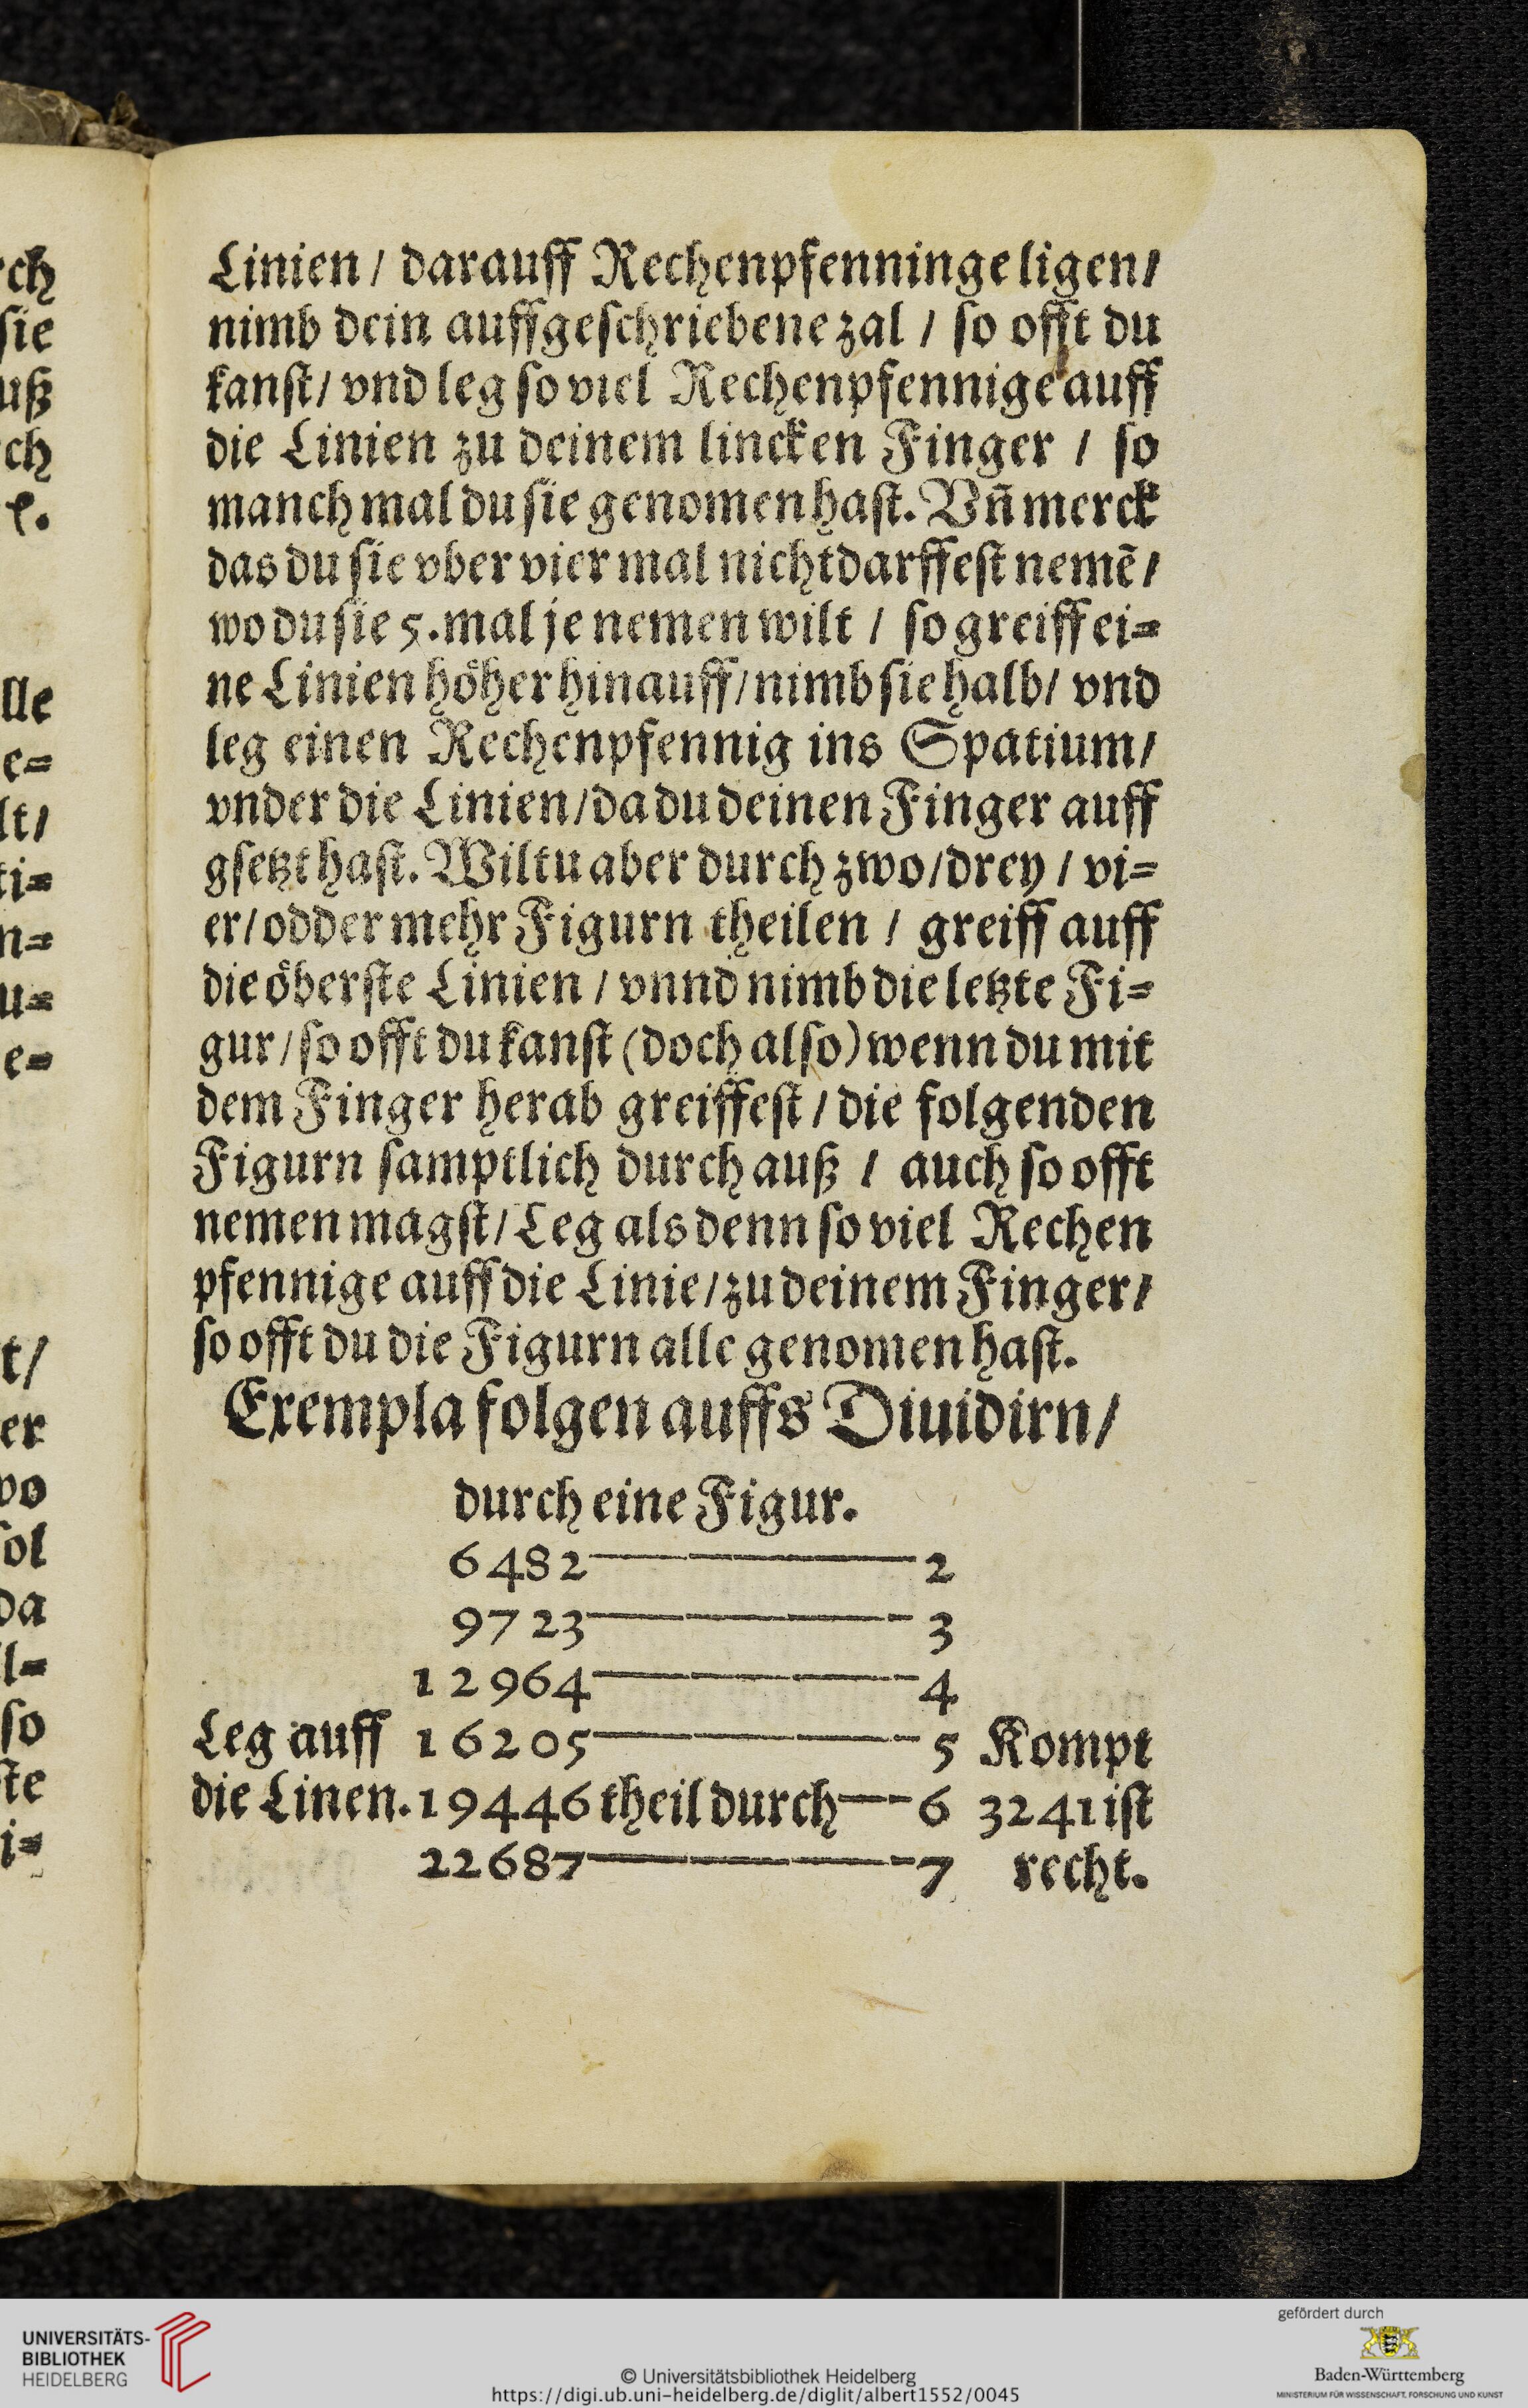 Linien / darauff Rechenpfenninge ligen /
nimb dein auffgeschriebene zal / so offt du
kanst / vnd leg so viel Rechenpfennige auff
die Linien zu deinem lincken Finger / so
manch mal du sie genomen hast. Vñ merck
das du sie vber vier mal nicht darffest nemẽ /
wo du sie 5. mal je nemen wilt / so greiff ei=
ne Linien höher hinauff / nimb sie halb / vnd
leg einen Rechenpfennig ins Spatium /
vnder die Linien / da du deinen Finger auff
gsetzt hast. Wiltu aber durch zwo / drey / vi=
er / odder mehr Figurn theilen / greiff auff
die öberste Linien / vnnd nimb die letzte Fi=
gur / so offt du kanst (doch also) wenn du mit
dem Finger herab greiffest / die folgenden
Figurn samptlich durch auß / auch so offt
nemen magst / Leg als denn so viel Rechen
pfennige auff die Linie / zu deinem Finger /
so offt du die Figurn alle genomen hast.
Exempla folgen auffs Diuidirn /
durch eine Figur.
6482 — 2
9723 — 3
12964 — 4
Leg auff 16205 — 5 Kompt
die Linen. 19446 theil durch — 6 3241 ist
22687 — 7 recht.
rch
sie
uß
ch
lle
e=
lt /
ti=
n=
u=
e=
t /
er
wo
sol
da
l=
so
ste
i=
UNIVERSITÄTS-
BIBLIOTHEK
HEIDELBERG
© Universitätsbibliothek Heidelberg
https://digi.ub.uni-heidelberg.de/diglit/albert1552/0045
gefördert durch
Baden-Württemberg
MINISTERIUM FÜR WISSENSCHAFT, FORSCHUNG UND KUNST